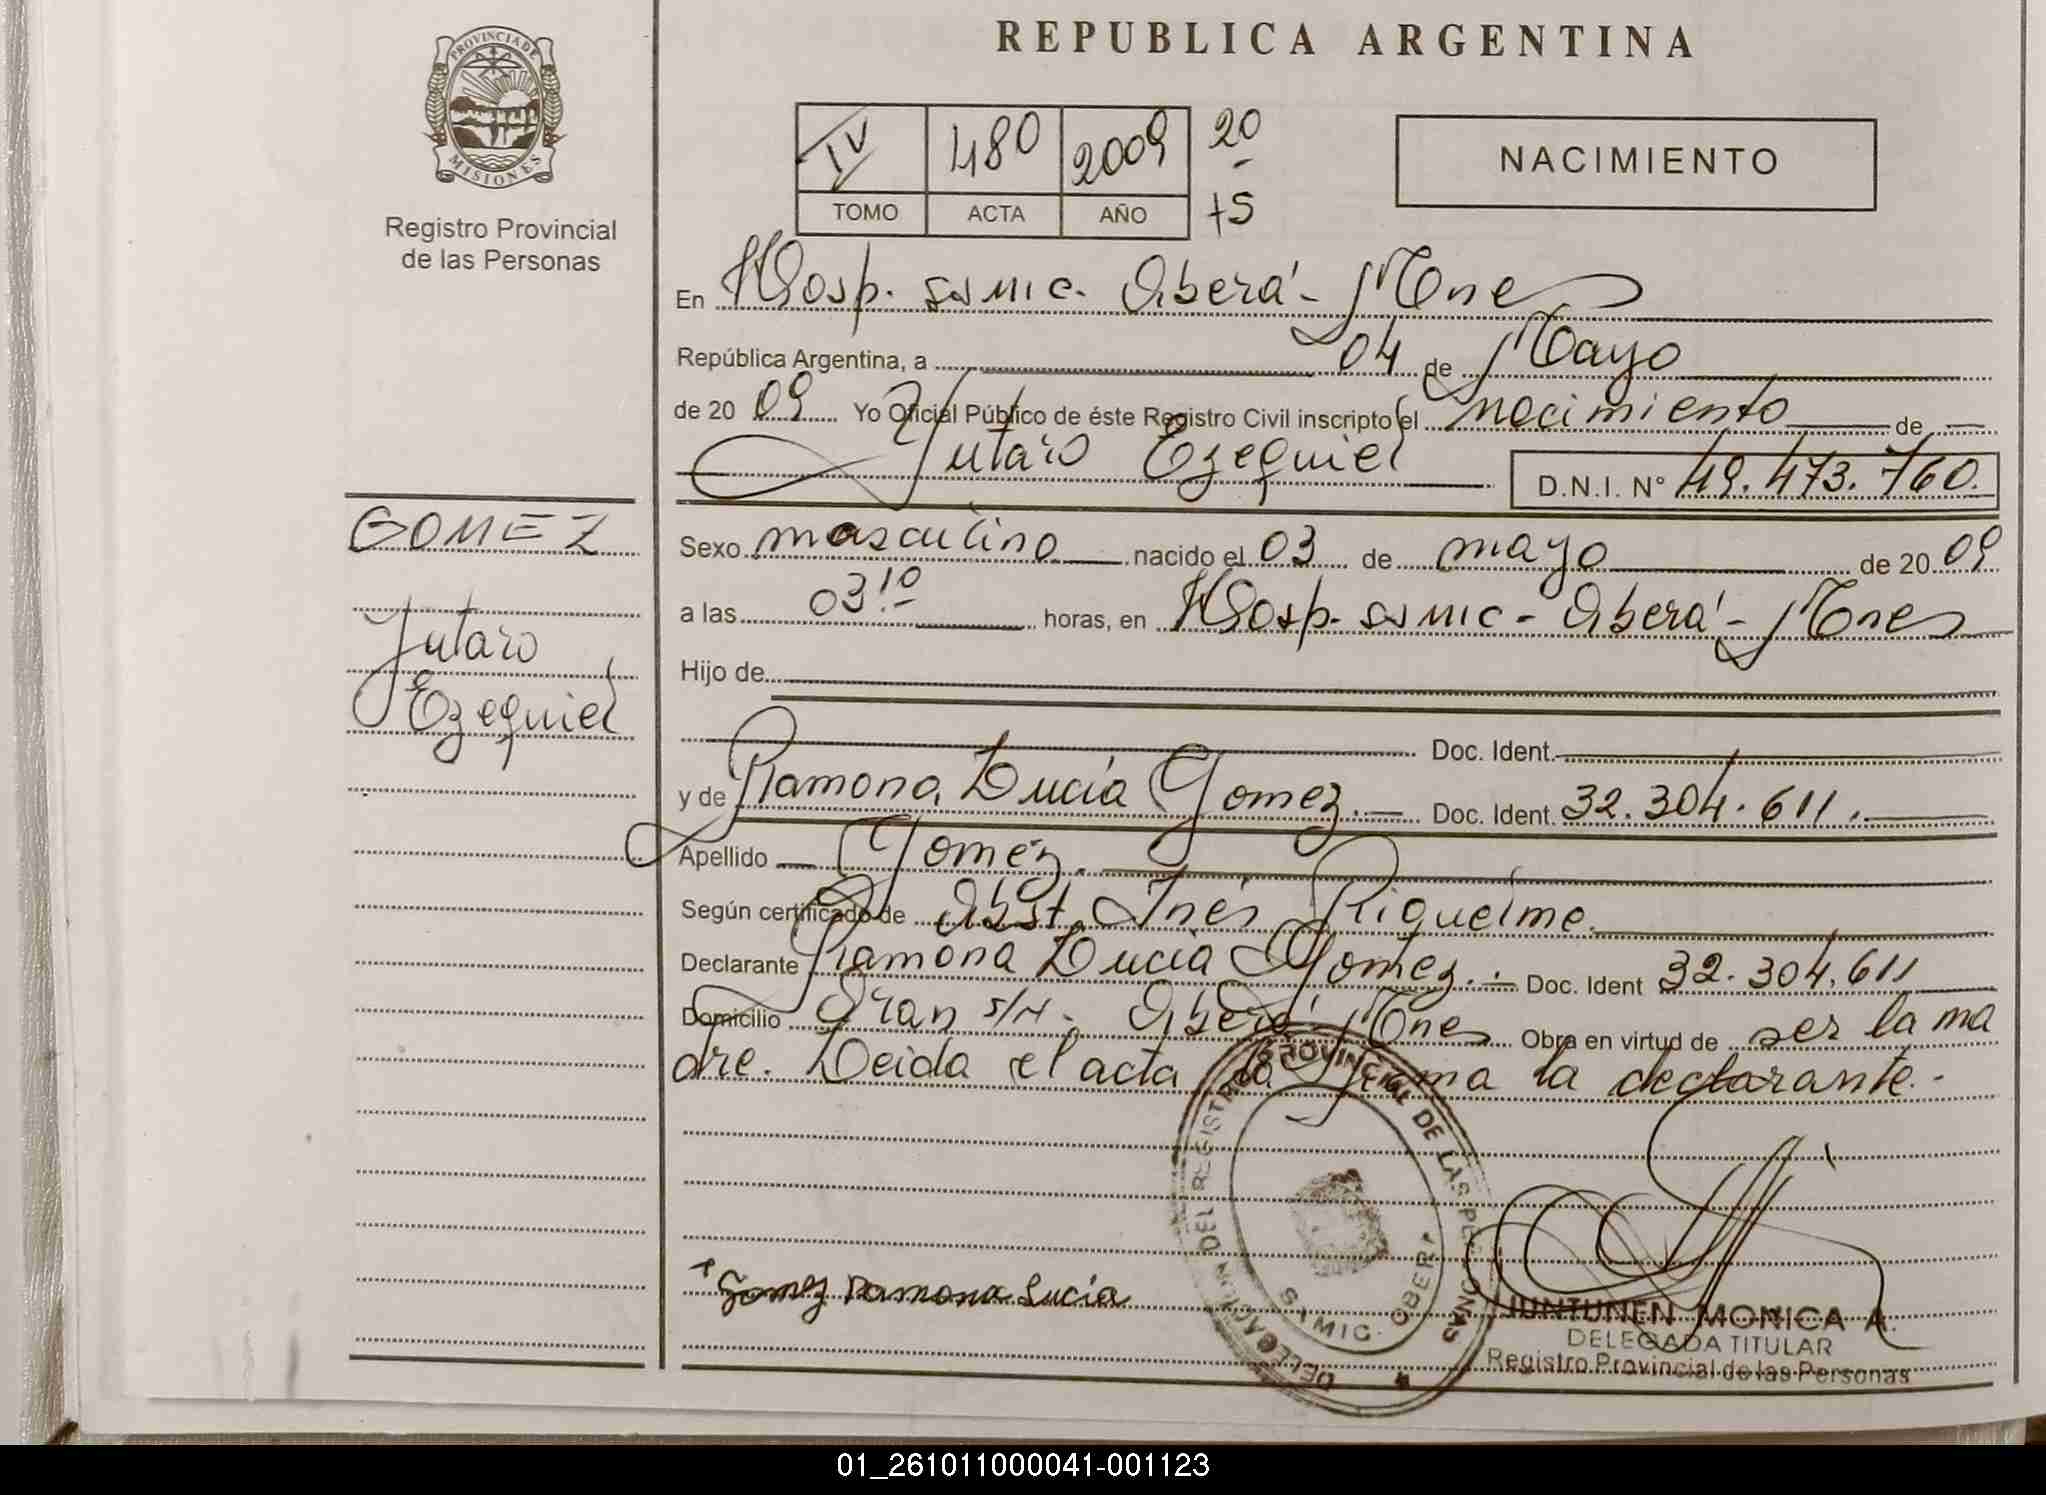 PROVINCIA DE
MISIONES
Registro Provincial
de las Personas
REPUBLICA ARGENTINA
IV 480 2009 20
TOMO ACTA AÑO 75
NACIMIENTO
En Hosp. SAMIC. Oberá - Mnes
República Argentina, a 04 de Mayo
de 2009 Yo Oficial Público de éste Registro Civil inscripto el nacimiento de
Yutaro Ezequiel D.N.I. N° 49.473.760.
GOMEZ
Yutaro
Ezequiel
Sexo masculino nacido el 03 de mayo de 2009
a las 03:10 horas, en Hosp. SAMIC - Oberá - Mnes
Hijo de
Doc. Ident.
y de Ramona Lucía Gomez. Doc. Ident. 32.304.611.
Apellido Gomez.
Según certificado de Obst. Inés Riquelme.
Declarante Ramona Lucía Gomez. Doc. Ident 32.304.611
Domicilio Gran S/N. Oberá Mnes Obra en virtud de ser la ma
dre. Leida el acta la firma la declarante.-
DELEGACION DEL REGISTRO PROVINCIAL DE LAS PERSONAS
SAMIC. OBERA
Gomez Ramona Lucia
JUNTUNEN MONICA A.
DELEGADA TITULAR
Registro Provincial de las Personas
01_261011000041-001123